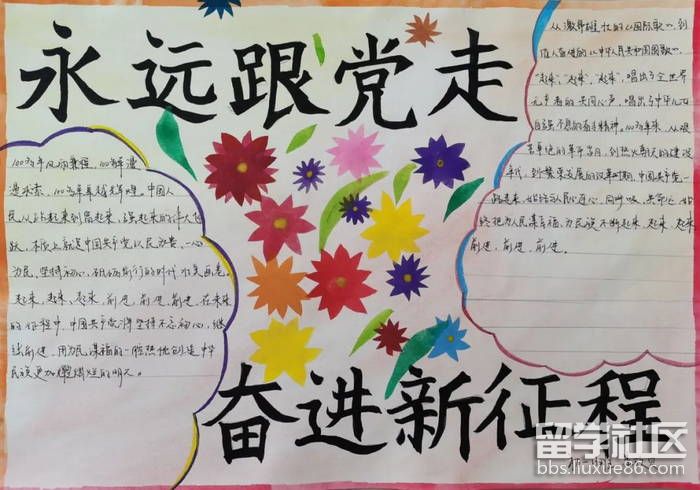 永远跟党走
100多年风雨兼程，100多年漫
漫求索，100多年卓越辉煌。中国人
民从站起来到富起来、强起来的伟大飞
跃，不仅
中国共产党以民为本、一心
为民，坚持初心，砥砺前行的时代
画卷。
起来，起来，起来，前进，前进，前进，在未来
的征程中，中国共产党将坚持不忘初心，继
续前进，用为民谋福的一腔热忱创造中华
民族更加辉煌灿烂的明天。
从激昂雄壮的《国际歌》，到
催人奋进的《中华人民共和国国歌》，
“起来”，“起来”，“起来”，唱出了全世界
的共同心声，唱出了中华儿女
自强不息的奋斗精神，100多年来，从艰
苦卓绝的革命岁月，到热火朝天的建设
年代，到繁荣发展的改革时期，中国共产党一
路走来，始终与人民心连心、同呼吸、共命运，始
终把为人民谋幸福，为民族
起来，起来，起来
前进，前进，前进。
奋进新征程
留学社区
bbs.liuxue86.com